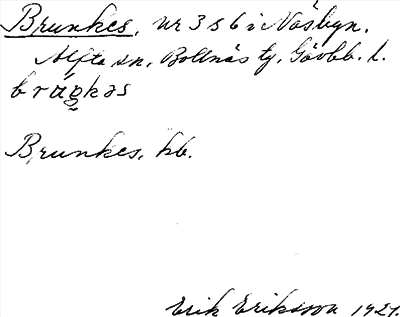 Brunkes, nr 3 o 6 i Näsbyn.
Alfta sn, Bollnäs tg, Gävlb. l.
Brunkes, hb.
Erik Eriksson 1927.